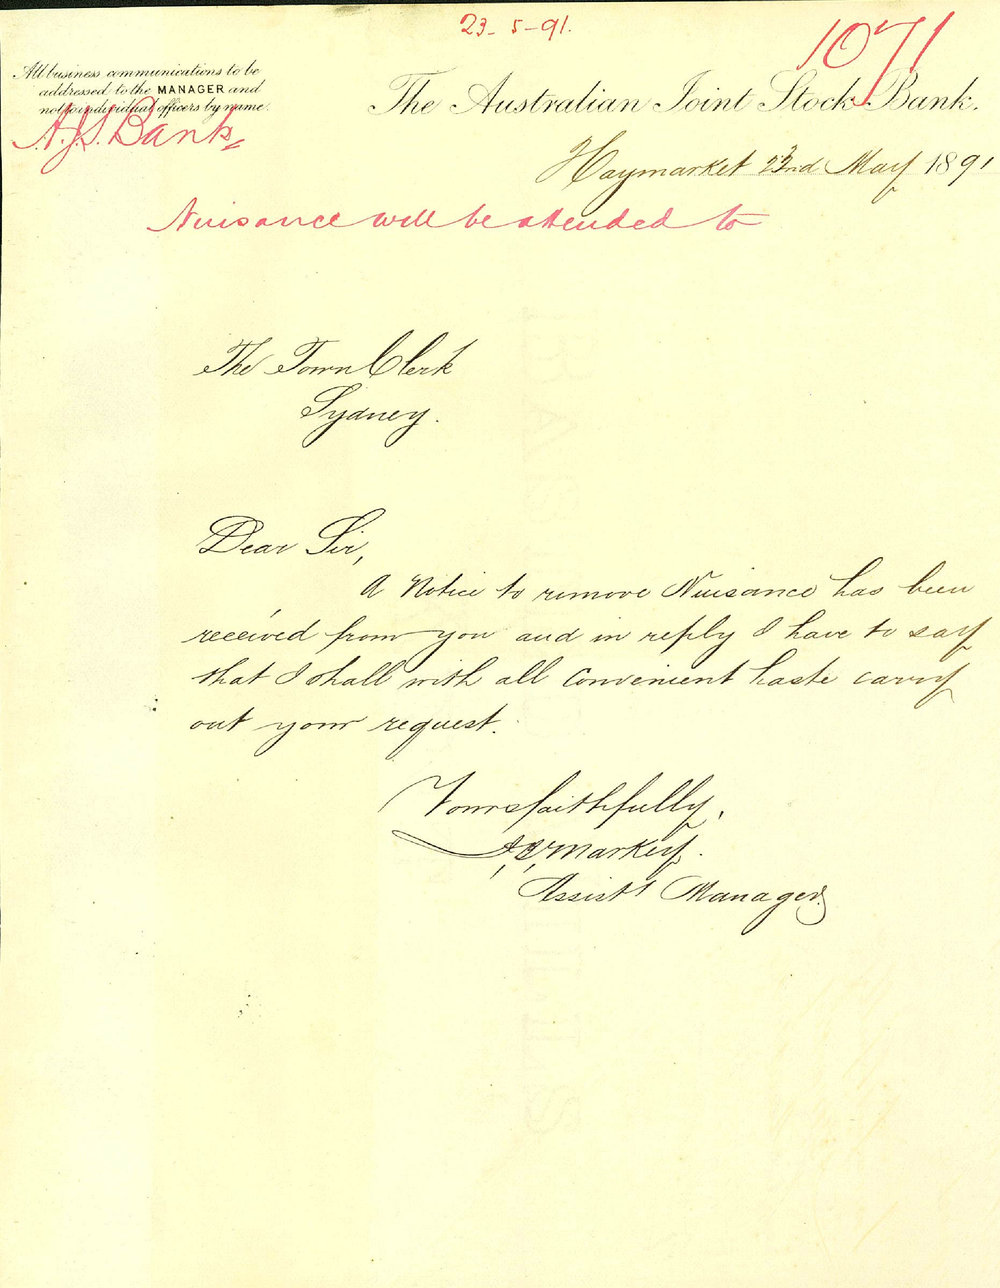 23-5-91.
1071
All business communications to be
addressed to the MANAGER and
not to individual officers by name.
A.J.S. Bank
The Australian Joint Stock Bank.
Haymarket 23rd May 1891
Nuisance will be attended to
The Town Clerk
Sydney.
Dear Sir,
A Notice to remove Nuisance has been
received from you and in reply I have to say
that I shall with all convenient haste carry
out your request.
Yours faithfully,
Markey.
Assistt Manager